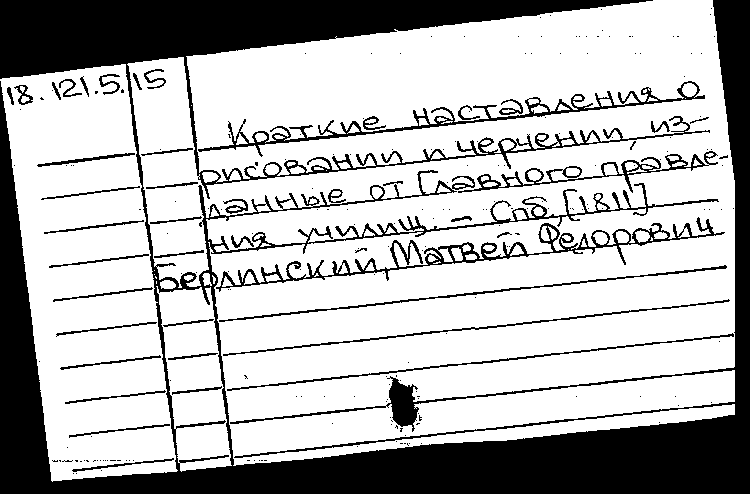 18.121.5.15
Краткие наставления о
рисовании и черчении, из-
данные от Главного правле-
ния училищ. – Спб, [1811]
Берлинский, Матвей Федорович